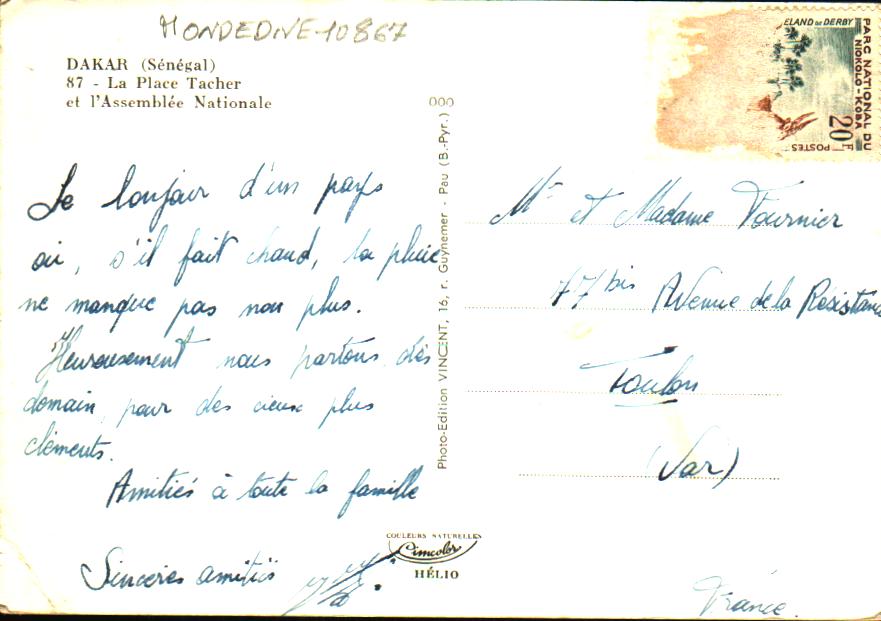 MONDEDIVE10867
DAKAR (Sénégal)
87 - La Place Tacher
et l'Assemblée Nationale
Le bonjour d'un pays
où, s'il fait chaud, la pluie
ne manque pas non plus.
Heureusement nous partons dès
demain, pour des cieux plus
cléments.
Amitiés à toute la famille
Sincères amitiés
000
Photo-Edition VINCENT, 16, r. Guynemer - Pau (B.-Pyr.)
COULEURS NATURELLES
Cimcolor
HÉLIO
ELAND DE DERBY
PARC NATIONAL DU
NIOKOLO-KOBA
20F
POSTES
Mr et Madame Fournier
77 bis Avenue de la Résistance
Toulon
(Var)
France.